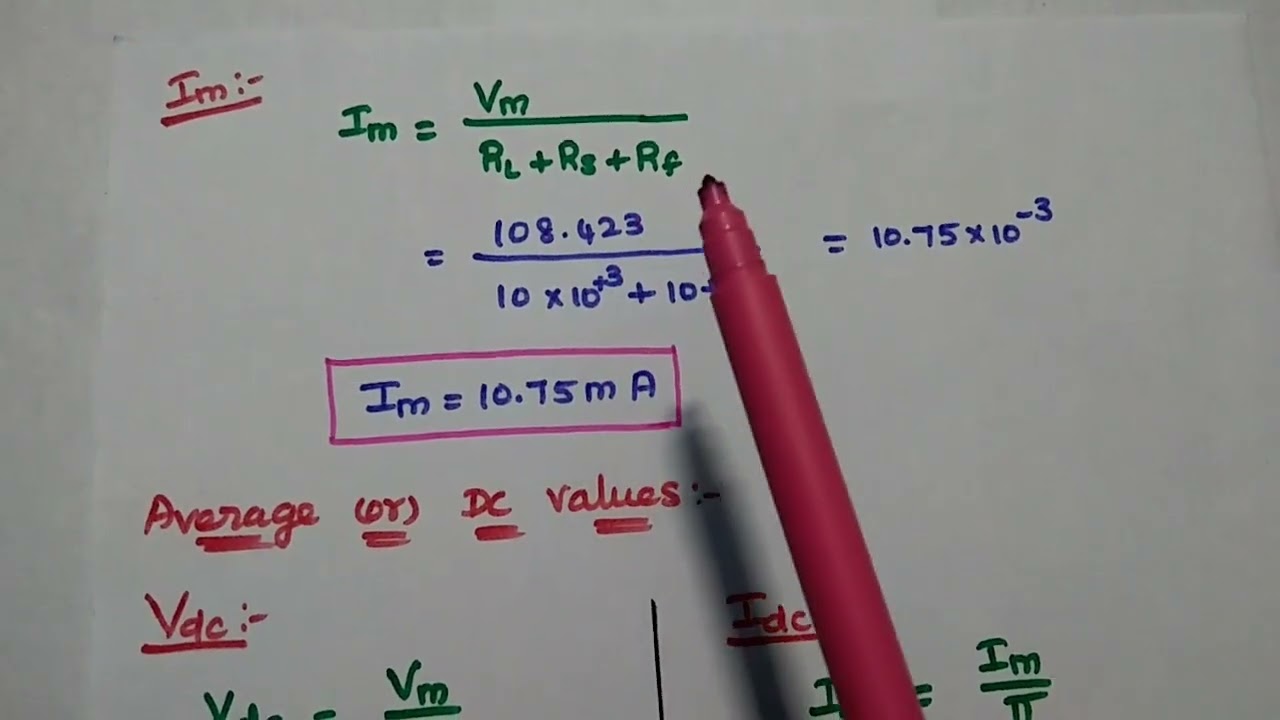 Im:-
Im = Vm
RL + RS + Rf
= 108.423
10 × 10⁺³ + 10+
= 10.75×10⁻³
Im = 10.75 m A
Average (or) DC values:-
Vdc:-
Idc
Vdc = Vm
I = Im
π